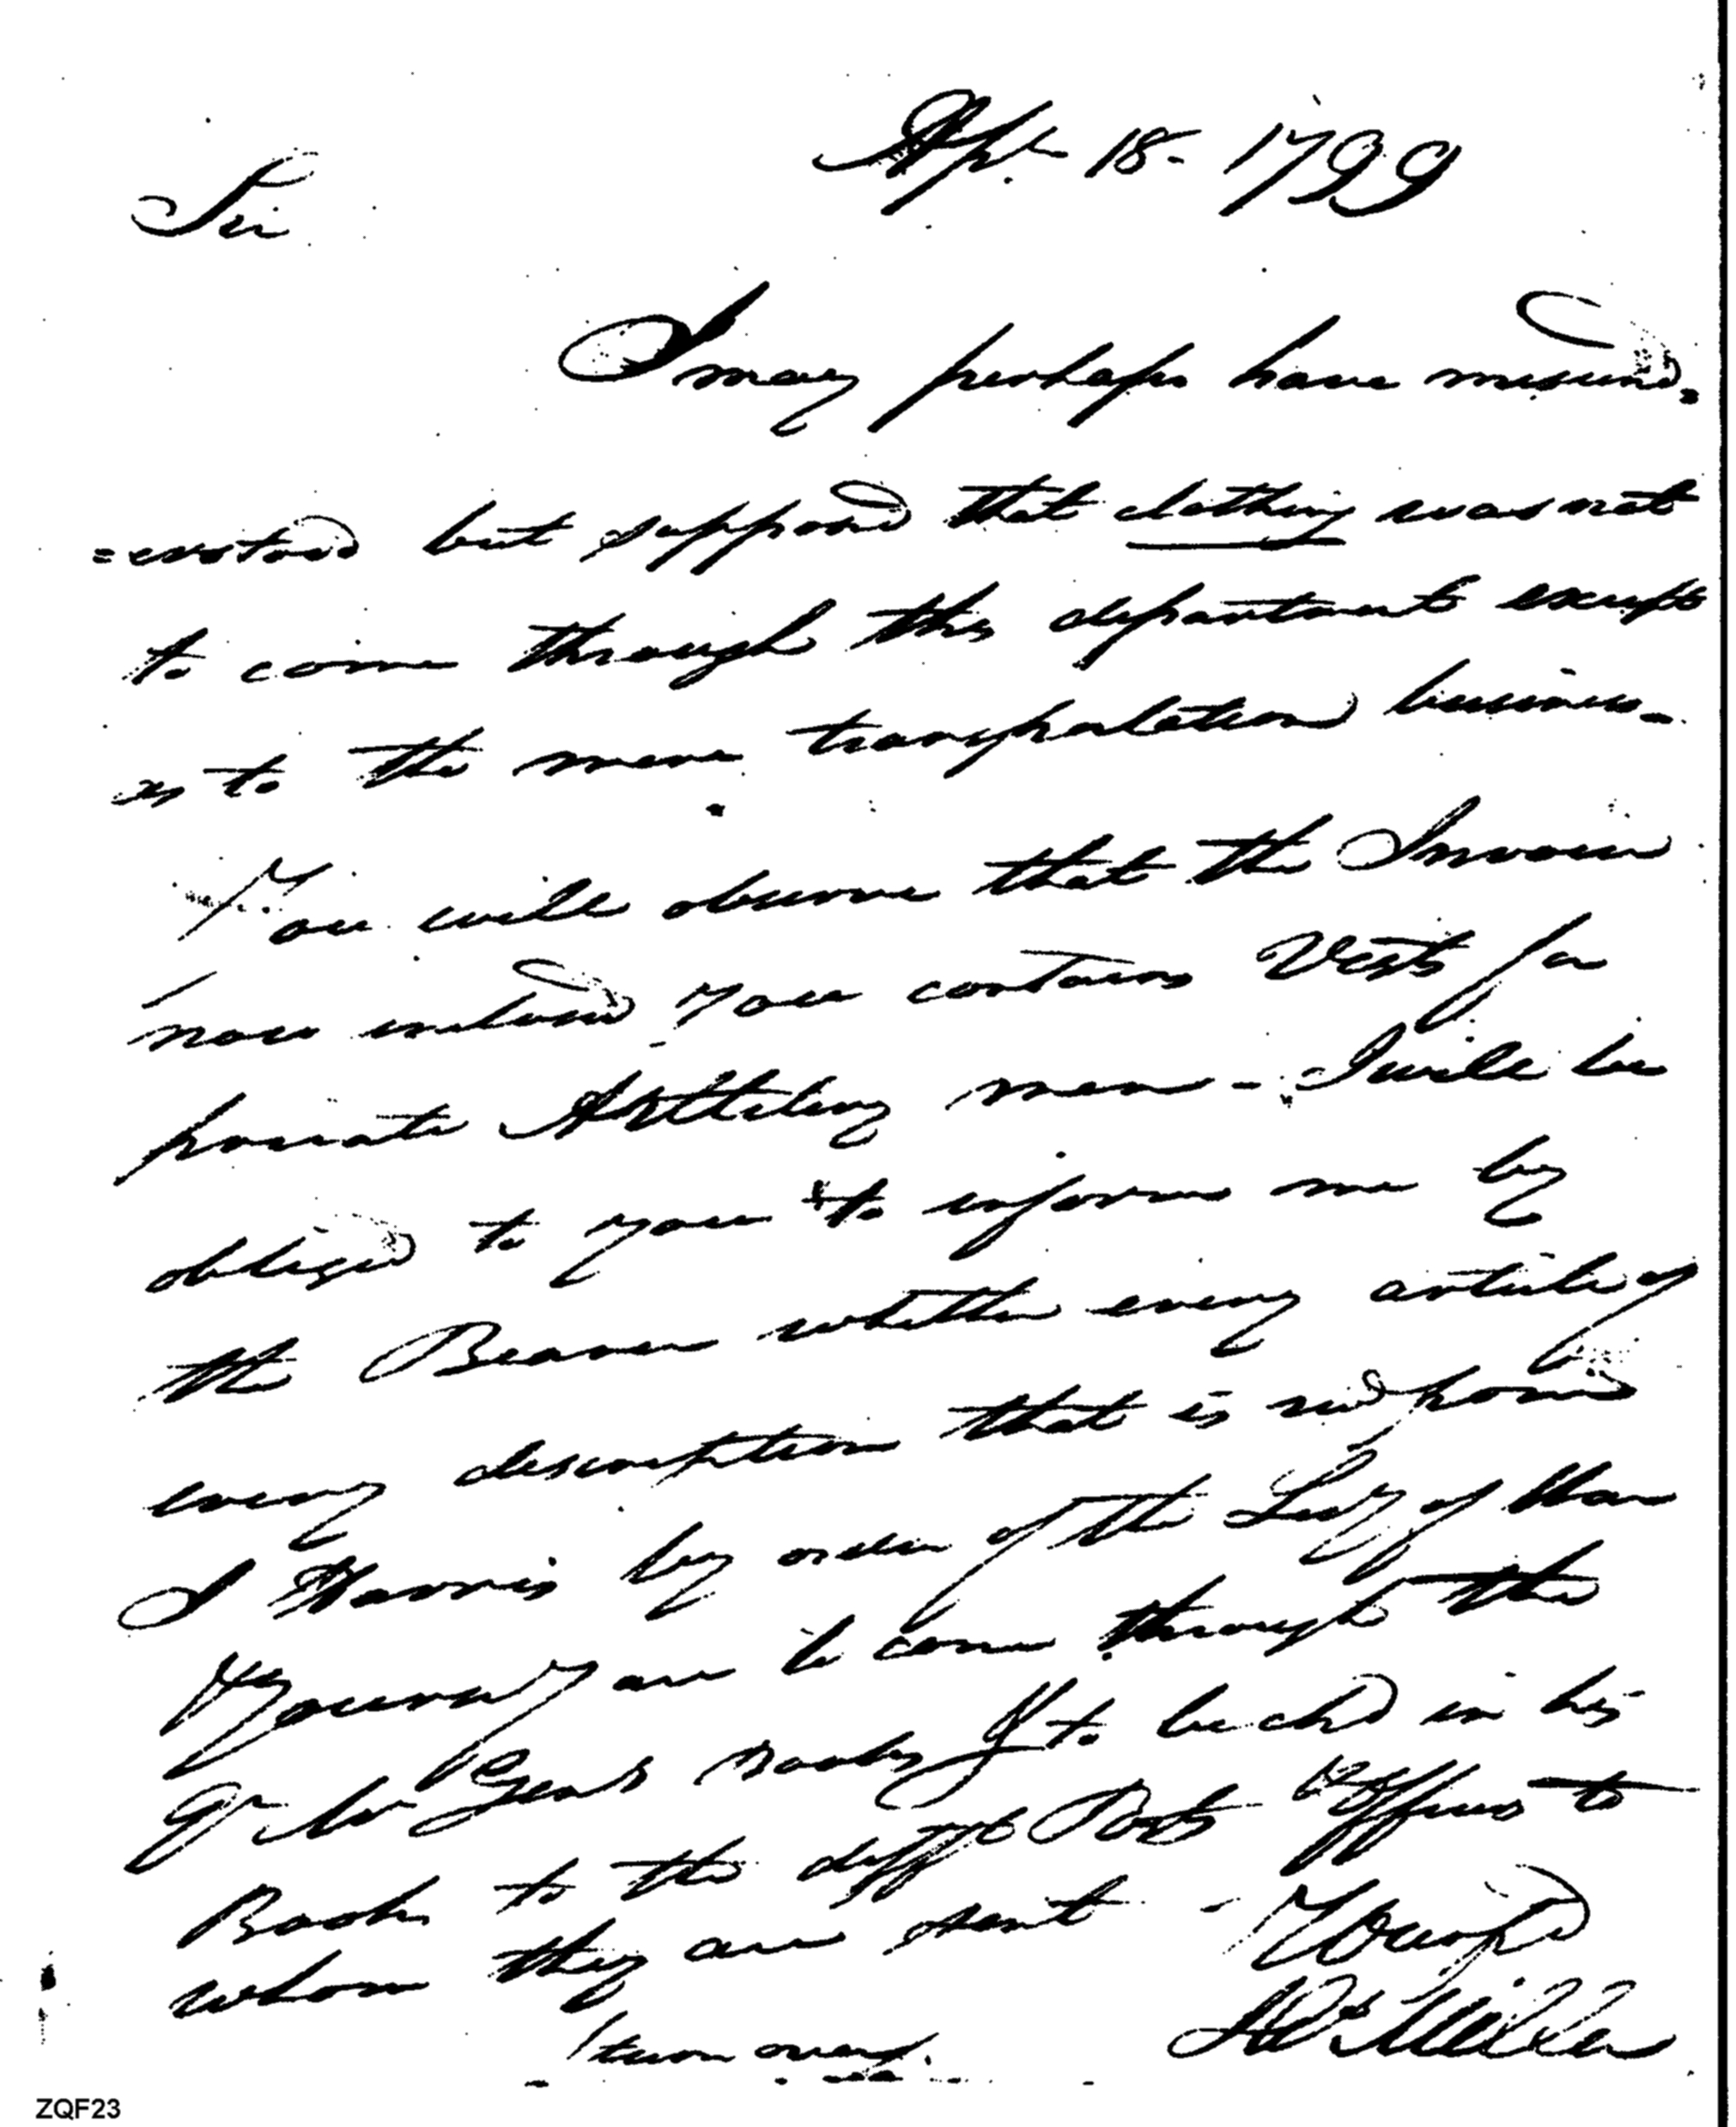 Apl. 18. 1799
Sir
I may perhaps have misund=
=erstood but supposed that clothing was not
to come through this department except
as to the mere transportation business.
You will observe that the Invoice
now inclosed you contains Vests for
private Artillery men - I will be
obliged to you to inform me by
the Bearer whether every article of
every description that is
I Harris by order of the Secy of War
are to come through the
to be chd in his
Books to the difft Officers to
whom they are sent -
Wm
turn over.
ZQF23